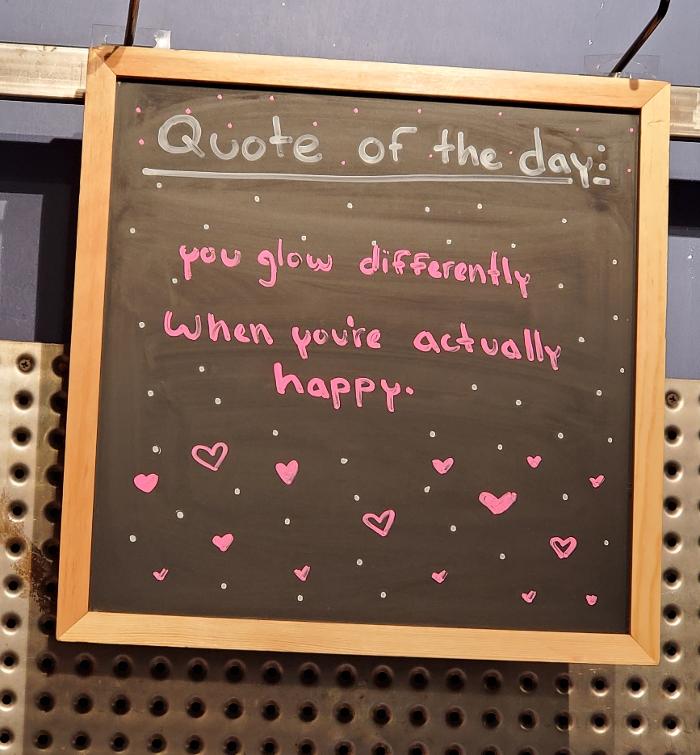 Quote of the day:
you glow differently
when you're actually
happy.